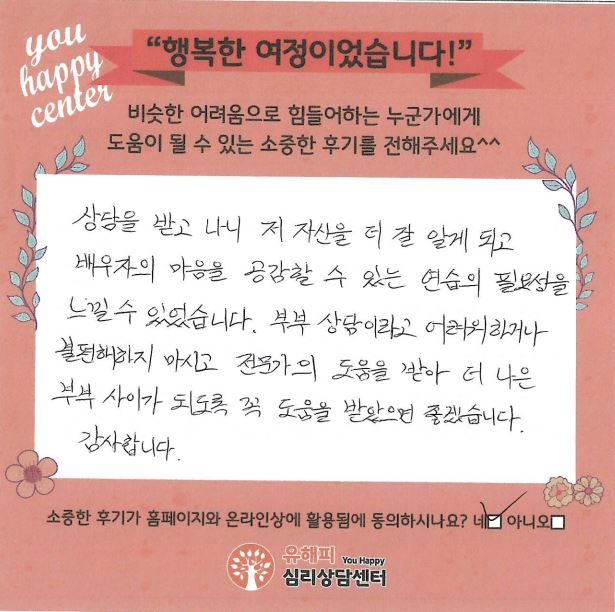 you
happy
center
“행복한 여정이었습니다!”
비슷한 어려움으로 힘들어하는 누군가에게
도움이 될 수 있는 소중한 후기를 전해주세요^^
상담을 받고 나니 저 자산을 더 잘 알게 되고
배우자의 마음을 공감할 수 있는 연습의 필요성을
느낄 수 있었습니다. 부부 상담이라고 어려워하거나
불편해하지 마시고 전문가의 도움을 받아 더 나은
부부 사이가 되도록 꼭 도움을 받았으면 좋겠습니다.
감사합니다.
소중한 후기가 홈페이지와 온라인상에 활용됨에 동의하시나요? 네 아니오
유해피 You Happy
심리상담센터